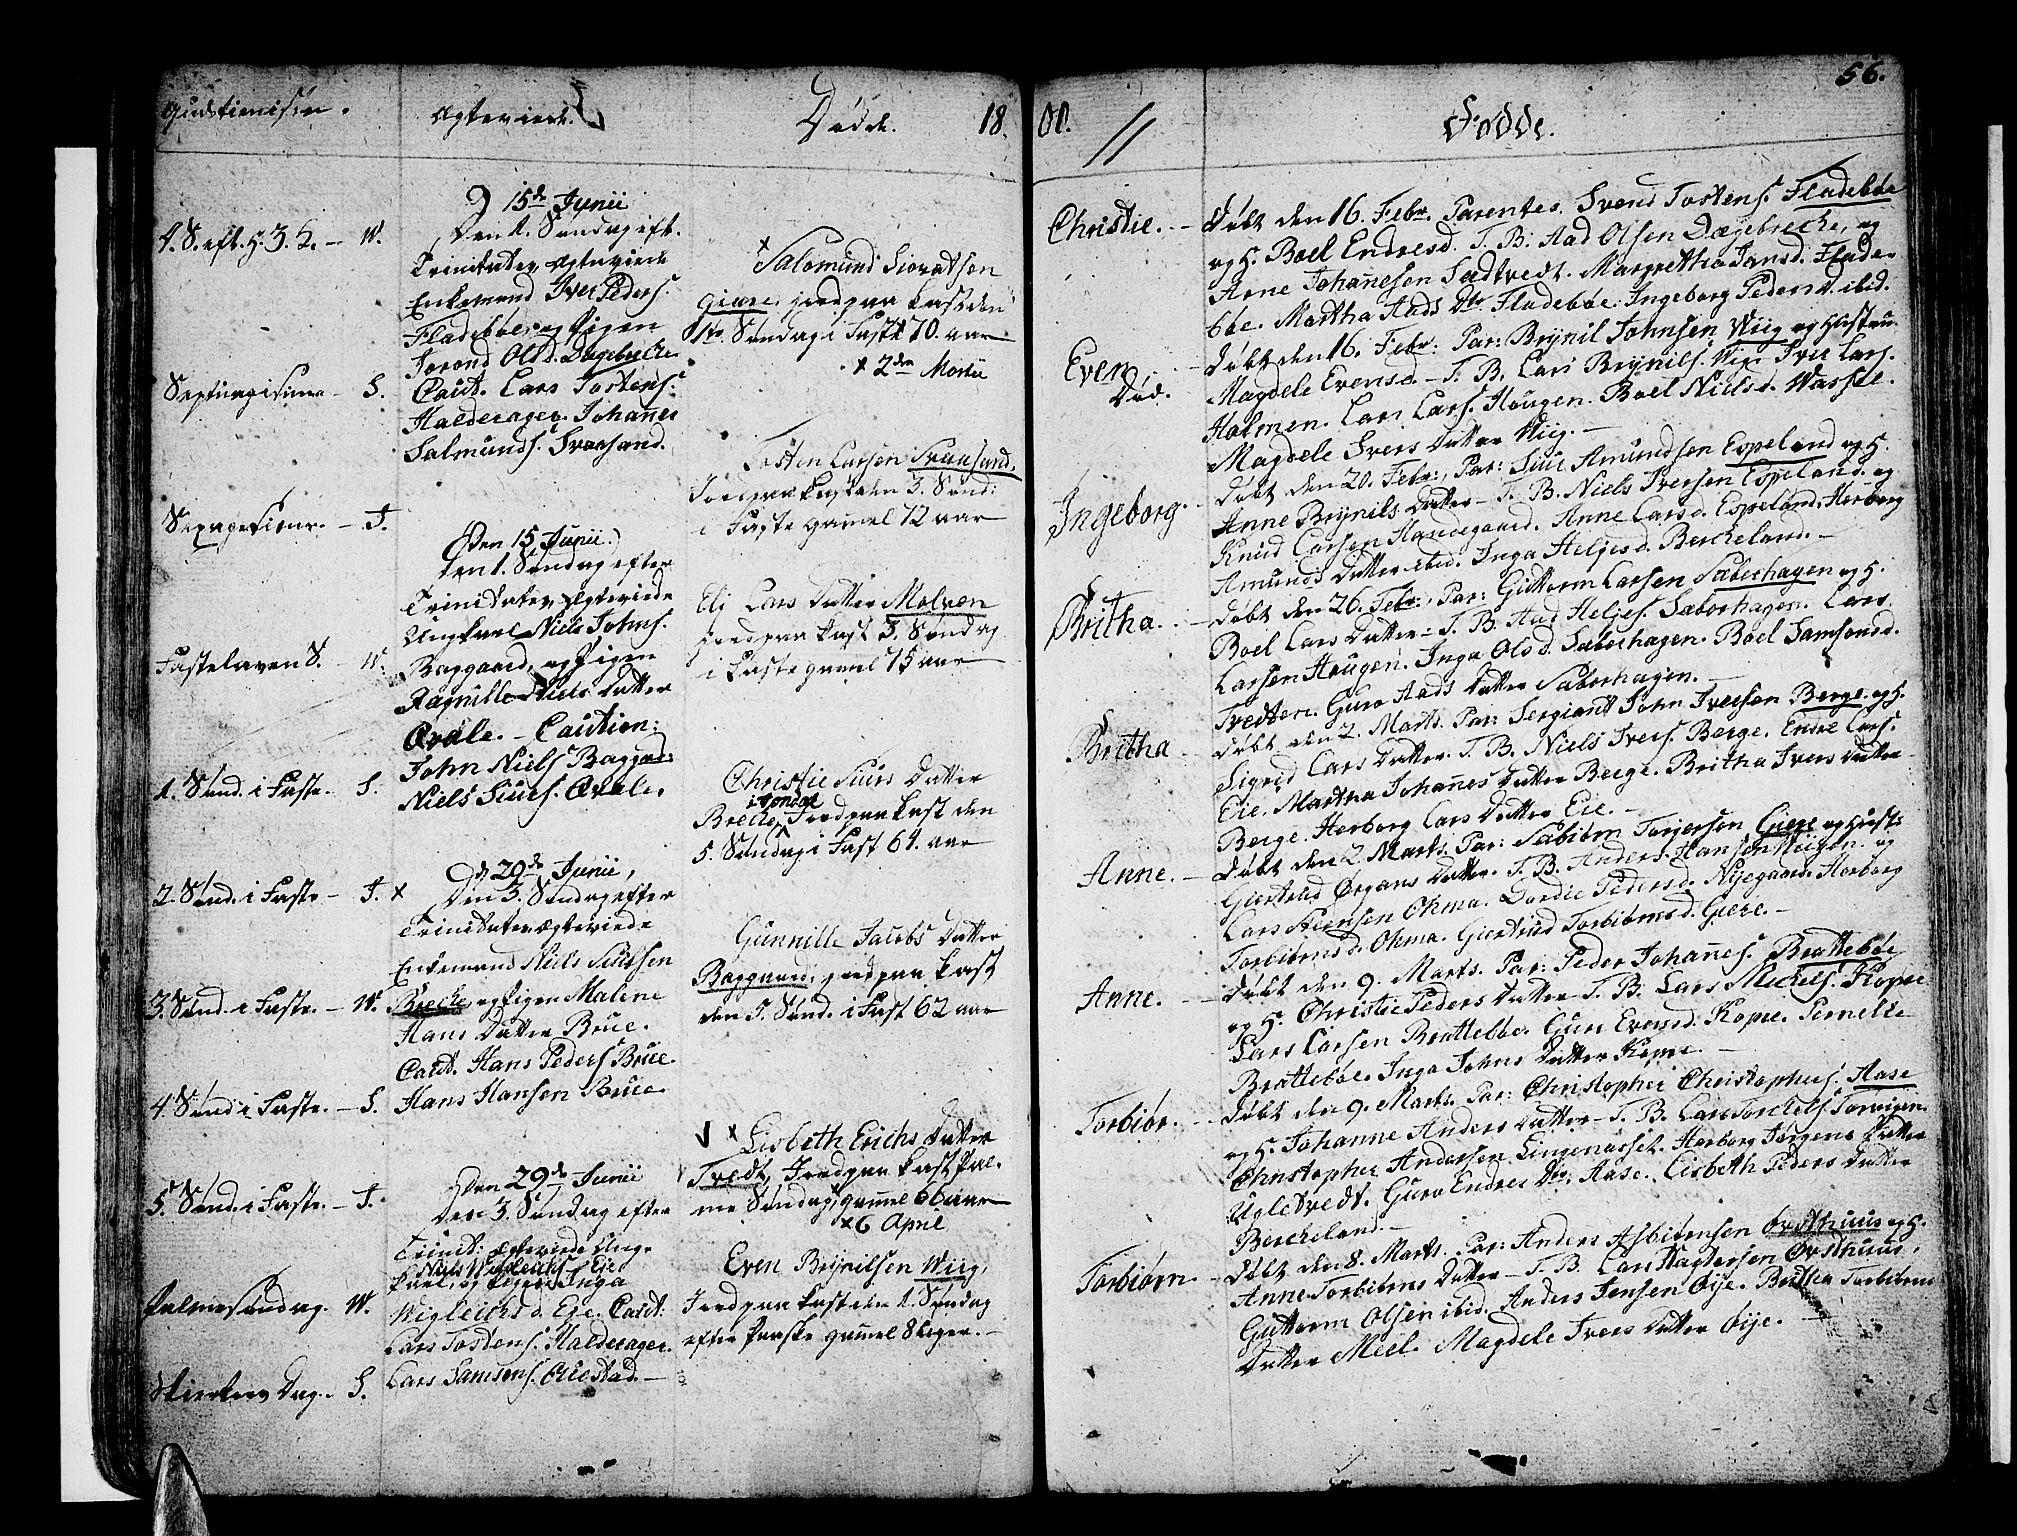 Gudstienisten.
4. S. eft. H. 3. K. – W.
Septuagisima – S.
Sexagesima. – J.
Fastelaven S. – W.
1. Sønd. i Faste. – S.
2. Sønd. i Faste – J. x
3. Sønd. i Faste. – W.
4. Sønd i Faste. – S.
5. Sønd. i Faste. – J.
Palmesøndag. W.
Skiertors Dag. – S.
Ægteviede.
d 15de Junii
Den 1. Søndag eft.
Trinitates, Ægteviede
Enkemand Iver Peders.
Fladebøe, og Pigen
Jorond Ols d. Døgebrecke
Caut. Lars Tostens.
Halderager. Johannes
Salmunds. Svaasand.
Den 15 Junii.
Den 1. Søndag efter
Trinitates, Ægteviede
Ungkarl Niels Johns.
Baggaard, og Pigen
Ragnille Niels Datter
Qvale. – Caution:
John Niels Baggrd:
Niels Siurs. Qvale.
d 29de Junii,
Den 3. Søndag efter
Trinitates Ægteviede
Enkemand Niels Siursen
Brecke og Pigen Malene
Hans Datter Bruce.
Caut. Hans Peders Bruce.
Hans Hansen Bruce.
Den 29de Junii
Den 3. Søndag efter
Trinit: Ægteviede Ung-
Niels Wigleichs. Eie
karl, og Pigen Inga
Wigleichs d. Eie. Caut:
Lars Tostens. Halderager.
Lars Samsons. Qvestad. –
Døde. 18
x
Salomund Siovatsen
Giære, Jordpaakast den
1te. Søndag i Faste 70. aar
x 2den Martii
Tosten Larsen Svaasand,
Jordpaakast den 3. Sønd:
i Faste gamel 72 aar
Elj Lars Datter Malven
Jordpaakast 3. Søndag
i Faste gamel 75 aar
Christie Siurs Datter
i Tondal
Brecke, Jordpaakast den
5. Søndag i Fast 64. aar
Gunnille Jacobs Datter
Baggaard, Jordpaakast
den 5. Sønd. i Fast 62 aar
V x Lisbeth Erichs Datter
Tvedt, Jordpaakast Pal-
me Søndag, gamel 66 aar
x 6 April
Even Brynilsen Wiig,
Jordpaakast den 1. Søndag
efter Paaske gamel 8 Uger. –
01. 11 Fødde. 56.
Christie. – Døbt den 16. Febr. Parentes. Svend Tostens. Fladebøe
og H. Boel Endresd. T. B. Aad Olsen Døgebrecke, og
Arne Johannesen Sædtvedt. Margretha Jansd. Flade-
bøe. Martha Aads Dtr Fladebøe. Ingeborg Peders d. ibid.
Even Døbt den 16. Febr. Par: Brynil Johnsen Wiig og Hustru
Død. Magdele Evensd – T. B. Lars Brynils. Wiig. Iver Lars.
Holmen. Lars Lars. Hougen. Boel Niels d. Wassel.
Magdele Ivers Datter Wiig. –
Ingeborg. Døbt den 20. Febr., Par: Siur Amundsen Espeland og H.
Anne Brynils Datter – T. B. Niels Iversen Espeland. og
Knud Larsen Handegaard. Anne Lars d. Espeland. Herborg
Amunds Datter ibid. Inga Heljes d. Bercheland. –
Britha. – Døbt den 26. Febr., Par: Guttorm Larsen Saberhagen og H.
Boel Lars Datter – T. B. Aad Heljes. Saberhagen. Lars
Larsen Hougen. Inga Ols d. Saberhagen. Boel Samsons d.
Tvedten. Guro Aads Datter Saberhagen. –
Britha Døbt den 2. Marts. Par: Sergiant John Iversen Berge. og H.
Sigrid Lars Datter. T. B. Niels Ivers. Berge. Endre Lars.
Eie. Martha Johannes Datter Berge. Britha Ivers Datter
Berge. Herborg Lars Datter Eie. –
Anne. – Døbt den 2. Marts. Par: Sabiørn Torgersen Giere og Hust:
Giertrud Ørgans Datter. T. B. Anders Hansen Wiigen. og
Lars Steensen Ohma. Dordie Peders d. Nyegaard. Herborg
Torbiørns d. Ohma. Giertrud Torbiørns d. Giere. –
Anne. – Døbt den 9. Marts. Par: Peder Johannes. Brattebøe
og H. Christie Peders Datter – T. B. Lars Mickels. Kopre
Lars Larsen Brattebøe. Guri Evens d. Kopre. Pernelle
Brattebøe. Inga Johns Datter Kopre. –
Torbiør. – Døbt den 9. Marts. Par: Christopher Christophers. Aase
og H. Johanne Anders Datter – T. B. Lars Torchels. Torvigen.
Christopher Andersen Lingenarset. Herborg Jørgens Datter
Ugletvedt. Guro Endres Dtr. Aase. Lisbeth Peders Datter
Bercheland. –
Torbiørn. – Døbt den 8. Marts. Par: Anders Asbiørnsen Ørsthuus og H.
Anne Torbiørns Datter – T. B. Lars Hagtorsen Ørsthuus.
Guttorm Olsen ibid. Anders Jensen Øye. Britha Torbiørns
Datter Meel. Magdele Ivers Datter Øye. –